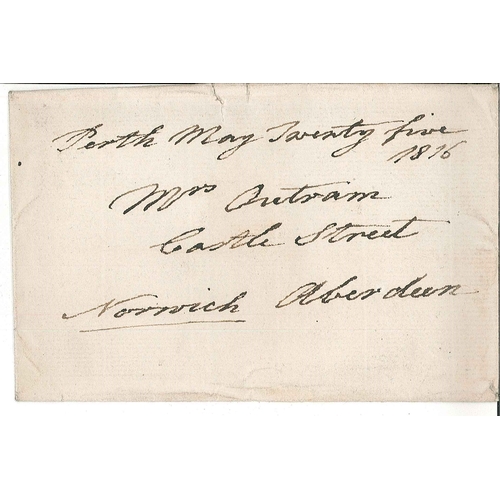 Perth May Twenty five
1816
Mrs Outram
Castle Street
Norwich Aberdeen